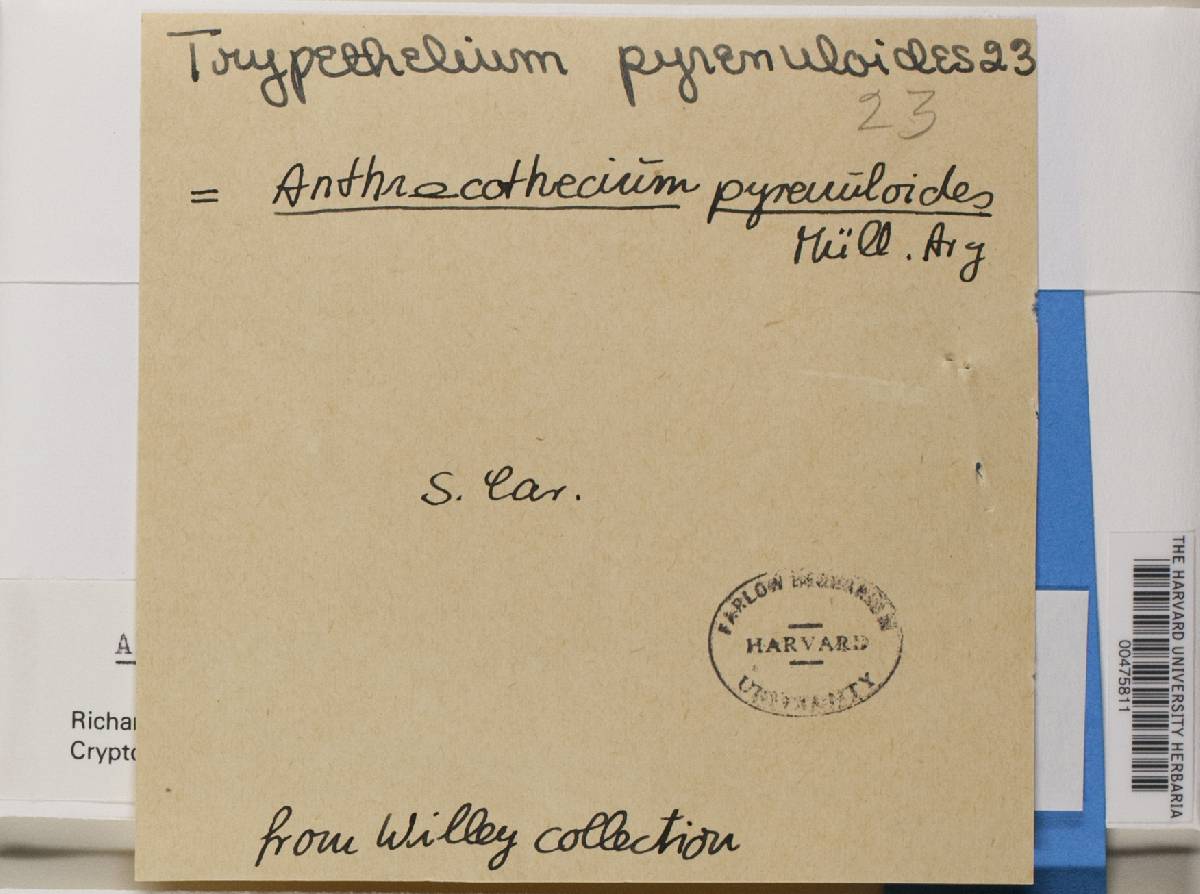 Trypethelium pyrenuloides 23
23
= Anthracothecium pyrenuloides
Müll. Arg
S. Car.
FARLOW HERBARIUM
HARVARD
UNIVERSITY
from Willey collection
A
Richar
Crypto
THE HARVARD UNIVERSITY HERBARIA
00475811